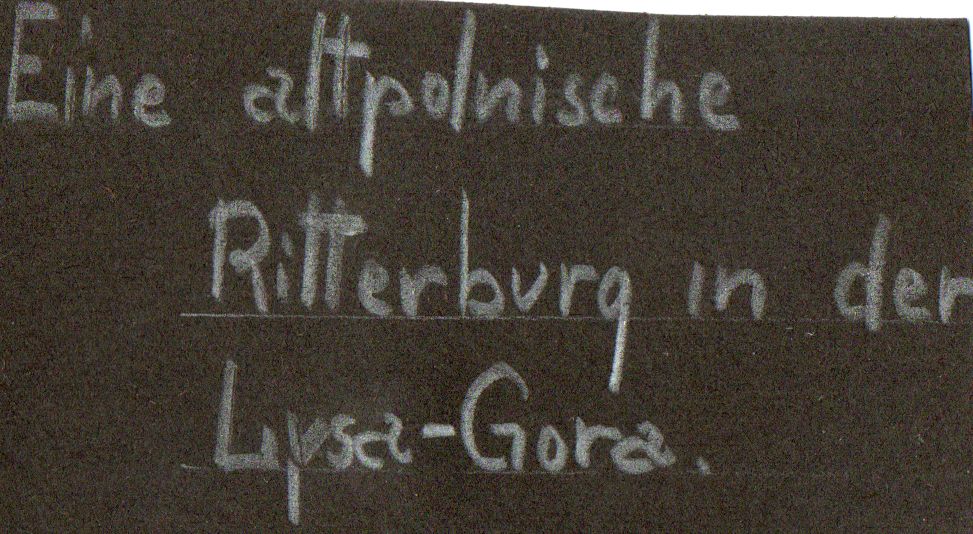 Eine altpolnische
Ritterburg in der
Lysa-Gora.